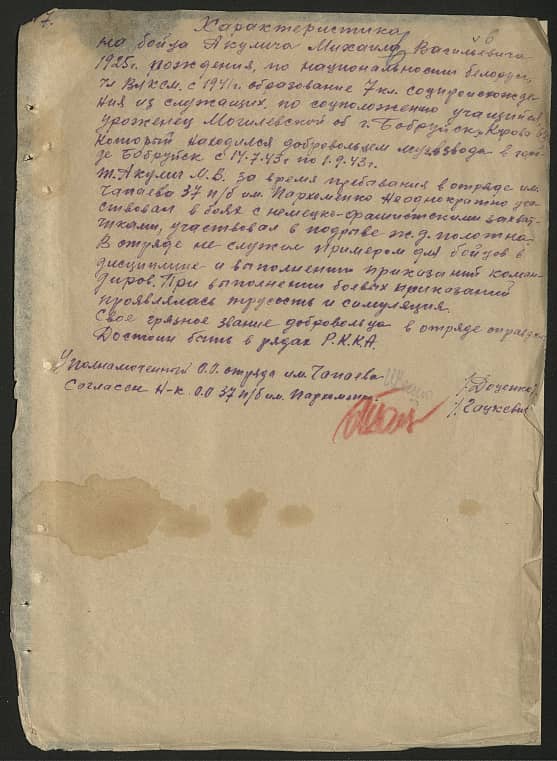 7.
Характеристика
на бойца Акулича Михаила Васильевича
1925г. рождения, по национальности белорус,
чл Влксм. с 1941г. образование 7 кл. соцпроисхожде-
ния из служащих, по соцположению учащийся,
уроженец Могилевской об г. Бобруйск,
который находился добровольцем в гор-
де Бобруйск с 14.7.43г по 1.9.43г.
т. Акулич М.В. за время пребывания в отряде им.
Чапаева 37 п/б им. Пархоменко неоднократно уча-
ствовал в боях с немецко-фашистскими захват-
чиками, участвовал в подрыве ж.д. полотна.
В отряде не служил примером для бойцов в
дисциплине и выполнении приказаний коман-
диров. При выполнении боевых приказаний
проявлялась трусость и симуляция.
Свое грязное звание добровольца в отряде
Достоин быть в рядах Р.К.К.А.
Уполнамоченный О.О. отряда им. Чапаева /Доценко/
Согласен Н-к О.О 37 п/б им. Пархоменко /Гацкевич/